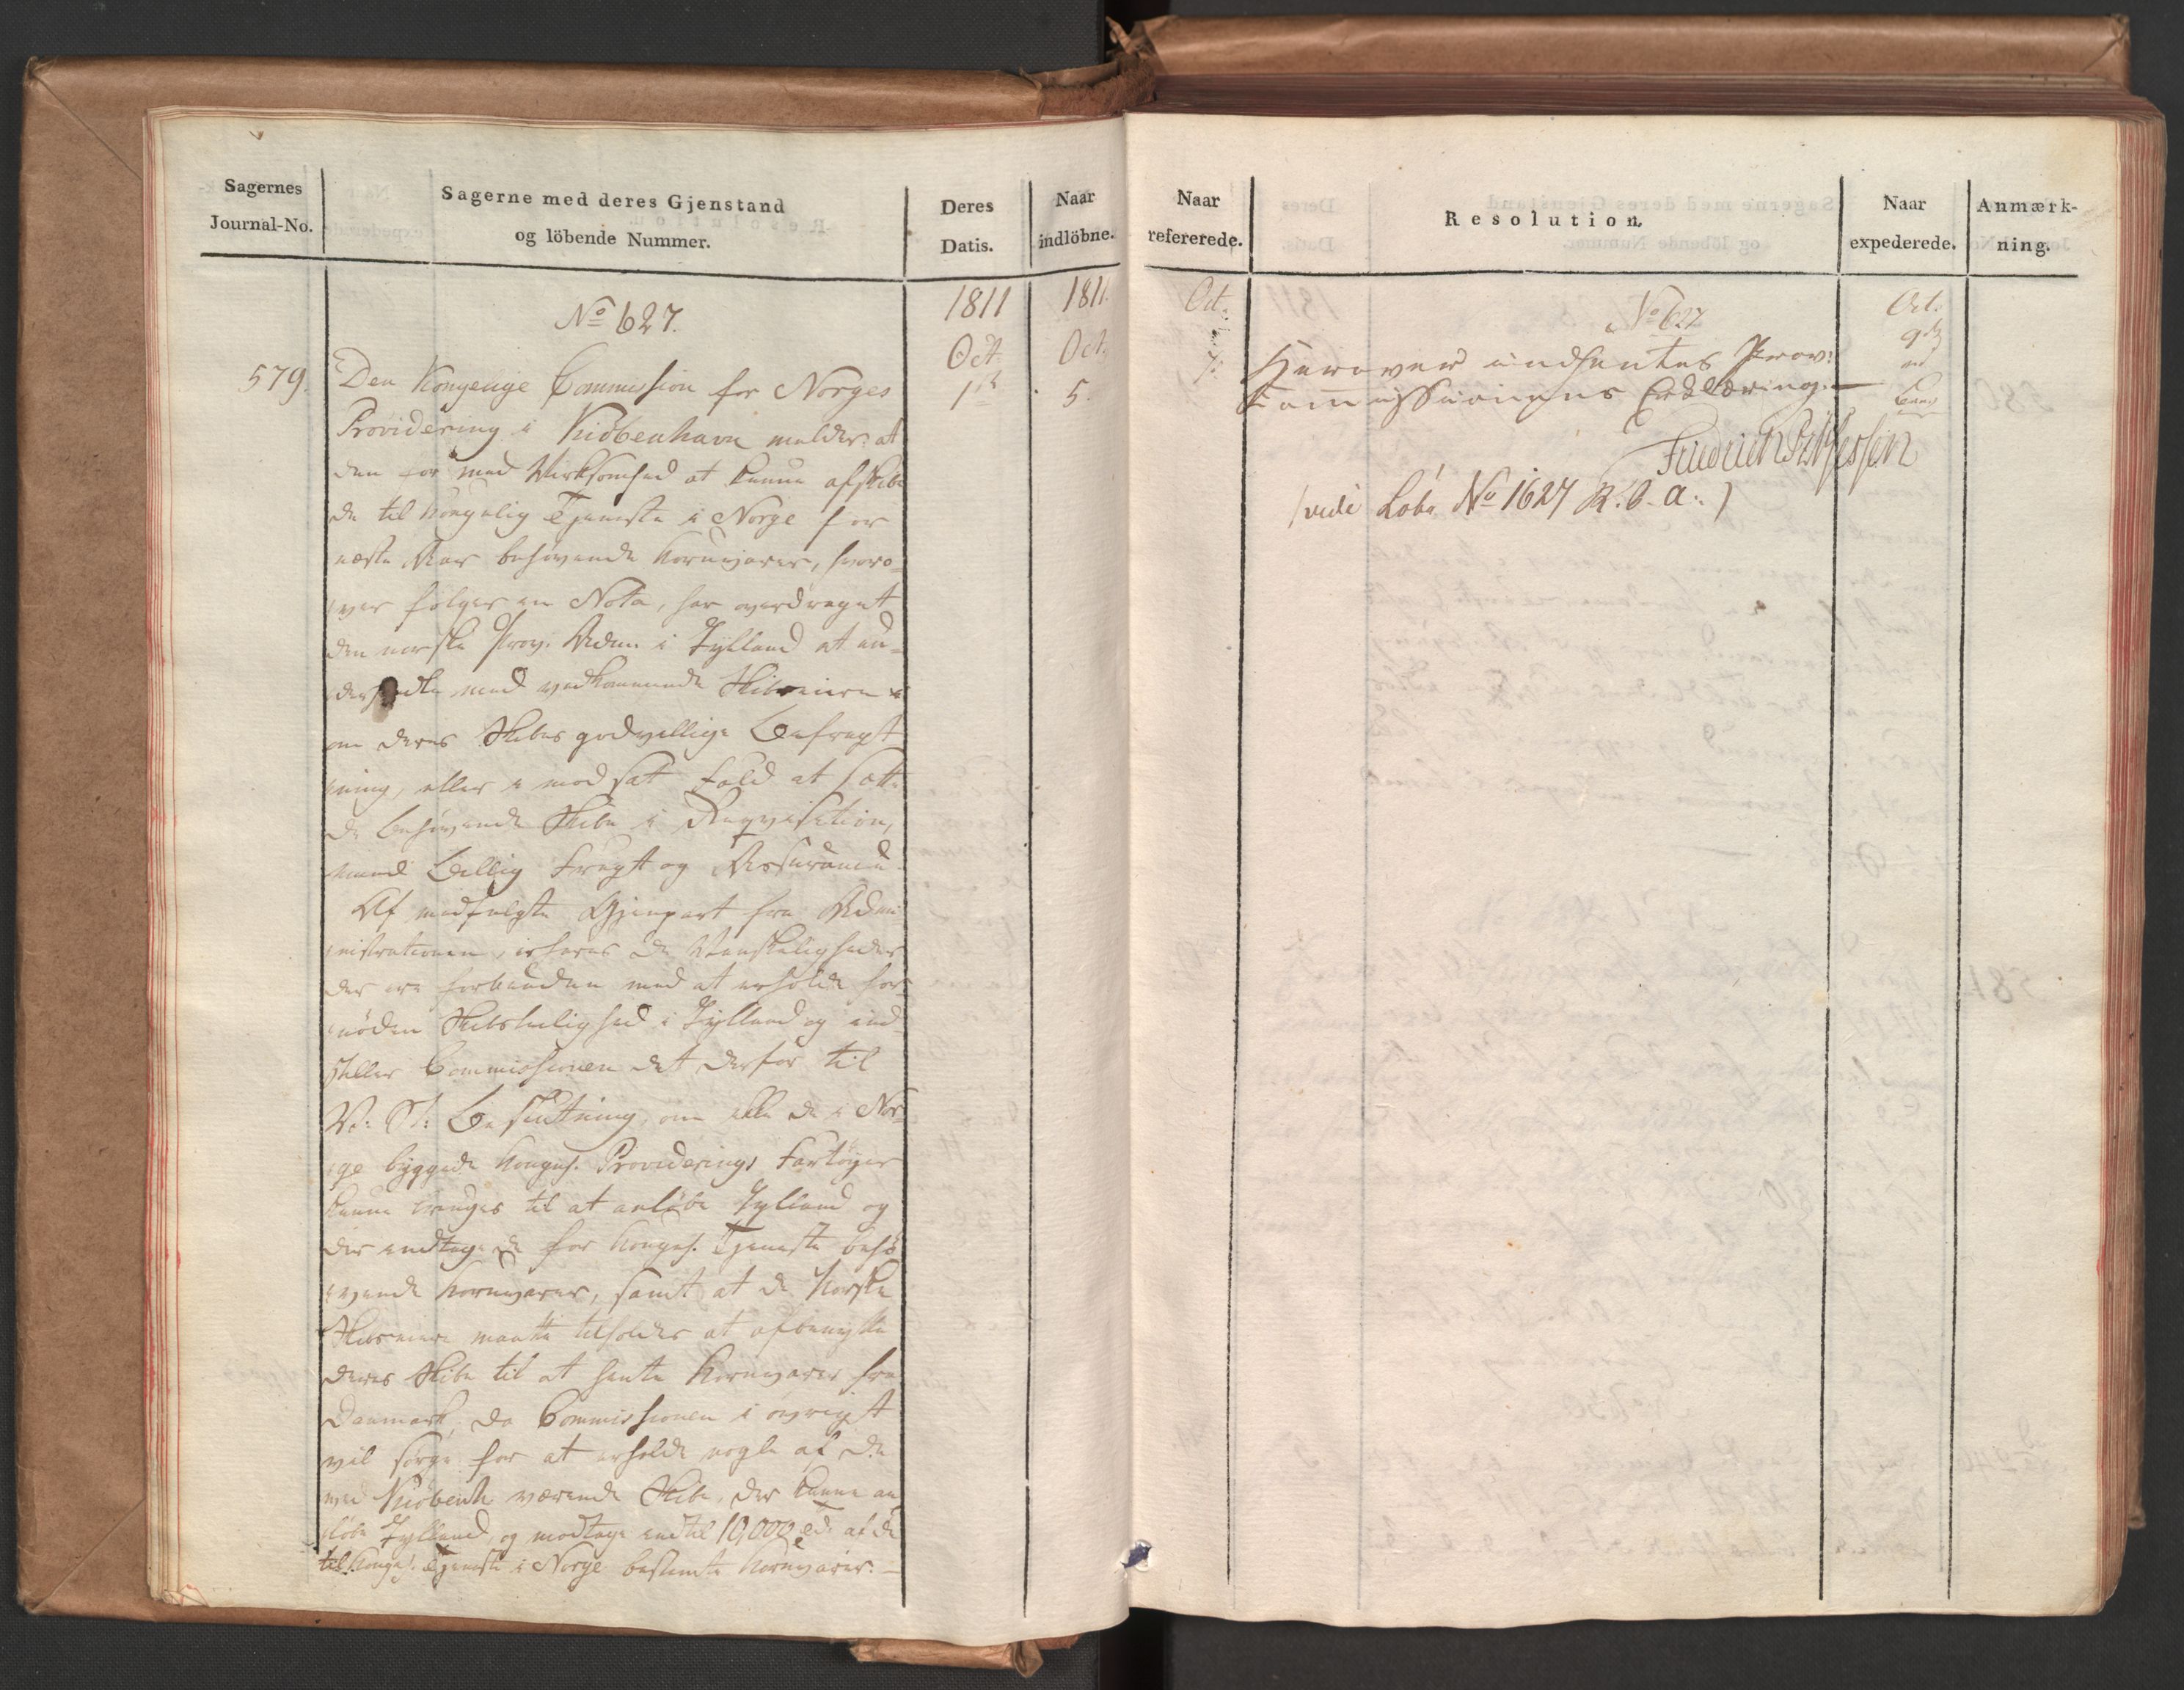 Sagernes
Journal-No.
Sagerne med deres Gjenstand
og löbende Nummer.
Deres
Datis.
Naar
indlöbne.
No 627.
1811
Oct.
1ste
1811.
Oct.
5.
579.
Den Kongelige Commission for Norges
Providering i Kiöbenhavn melder: at
den for med Virksomhed at kunne afskibe
de til Kongelig Tjeneste i Norge for
næste Aar behøvende Kornvarer, hvoro-
ver følger en Nota, har overdraget
den norske Prov. Adm. i Jylland at un-
derhandle med vedkommende Skibseiere
om deres Skibes godvillige Befragt
ning, eller i modsat Fald at sætte
de behøvende Skibe i Reqvisition,
mod billig Fragt og Assurance.
Af medfulgte Gjenpart fra Admi
nistrationen, erfares de Vanskeligheder
der ere forbunden med at erholde for-
nöden Skibsleilighed i Jylland og ind
stiller Commissionen det derfor til
V: S: Beslutning, om ikke de i Nor-
ge byggede Kongel. Providerings Fartöyer
kunne bruges til at anløbe Jylland og
der indtage de for Kongel. Tjeneste behö
vende Kornvarer, samt at de Norske
Skibseiere maatte tilholdes at afbenytte
deres Skibe til at hente Kornvarer fra
Danmark, da Commissionen i øvrigt
vil sørge for at erholde nogle af de
ved Kiöbenh. værende Skibe, der kunne an
löbe Jylland, og modtage indtil 10,000 Td. af de
til Kongel. Tjeneste i Norge bestemte Kornvarer.-
Naar
refererede.
Resolution.
Naar
expederede.
Anmærk-
ning.
Oct.
7.
No 627
Herover indhentes Prov:
Commissionens Erklæring.-
Friedrich Pr. t. Hessen
(vide Lobe No 1627 R. b. a.)
Oct.
9de